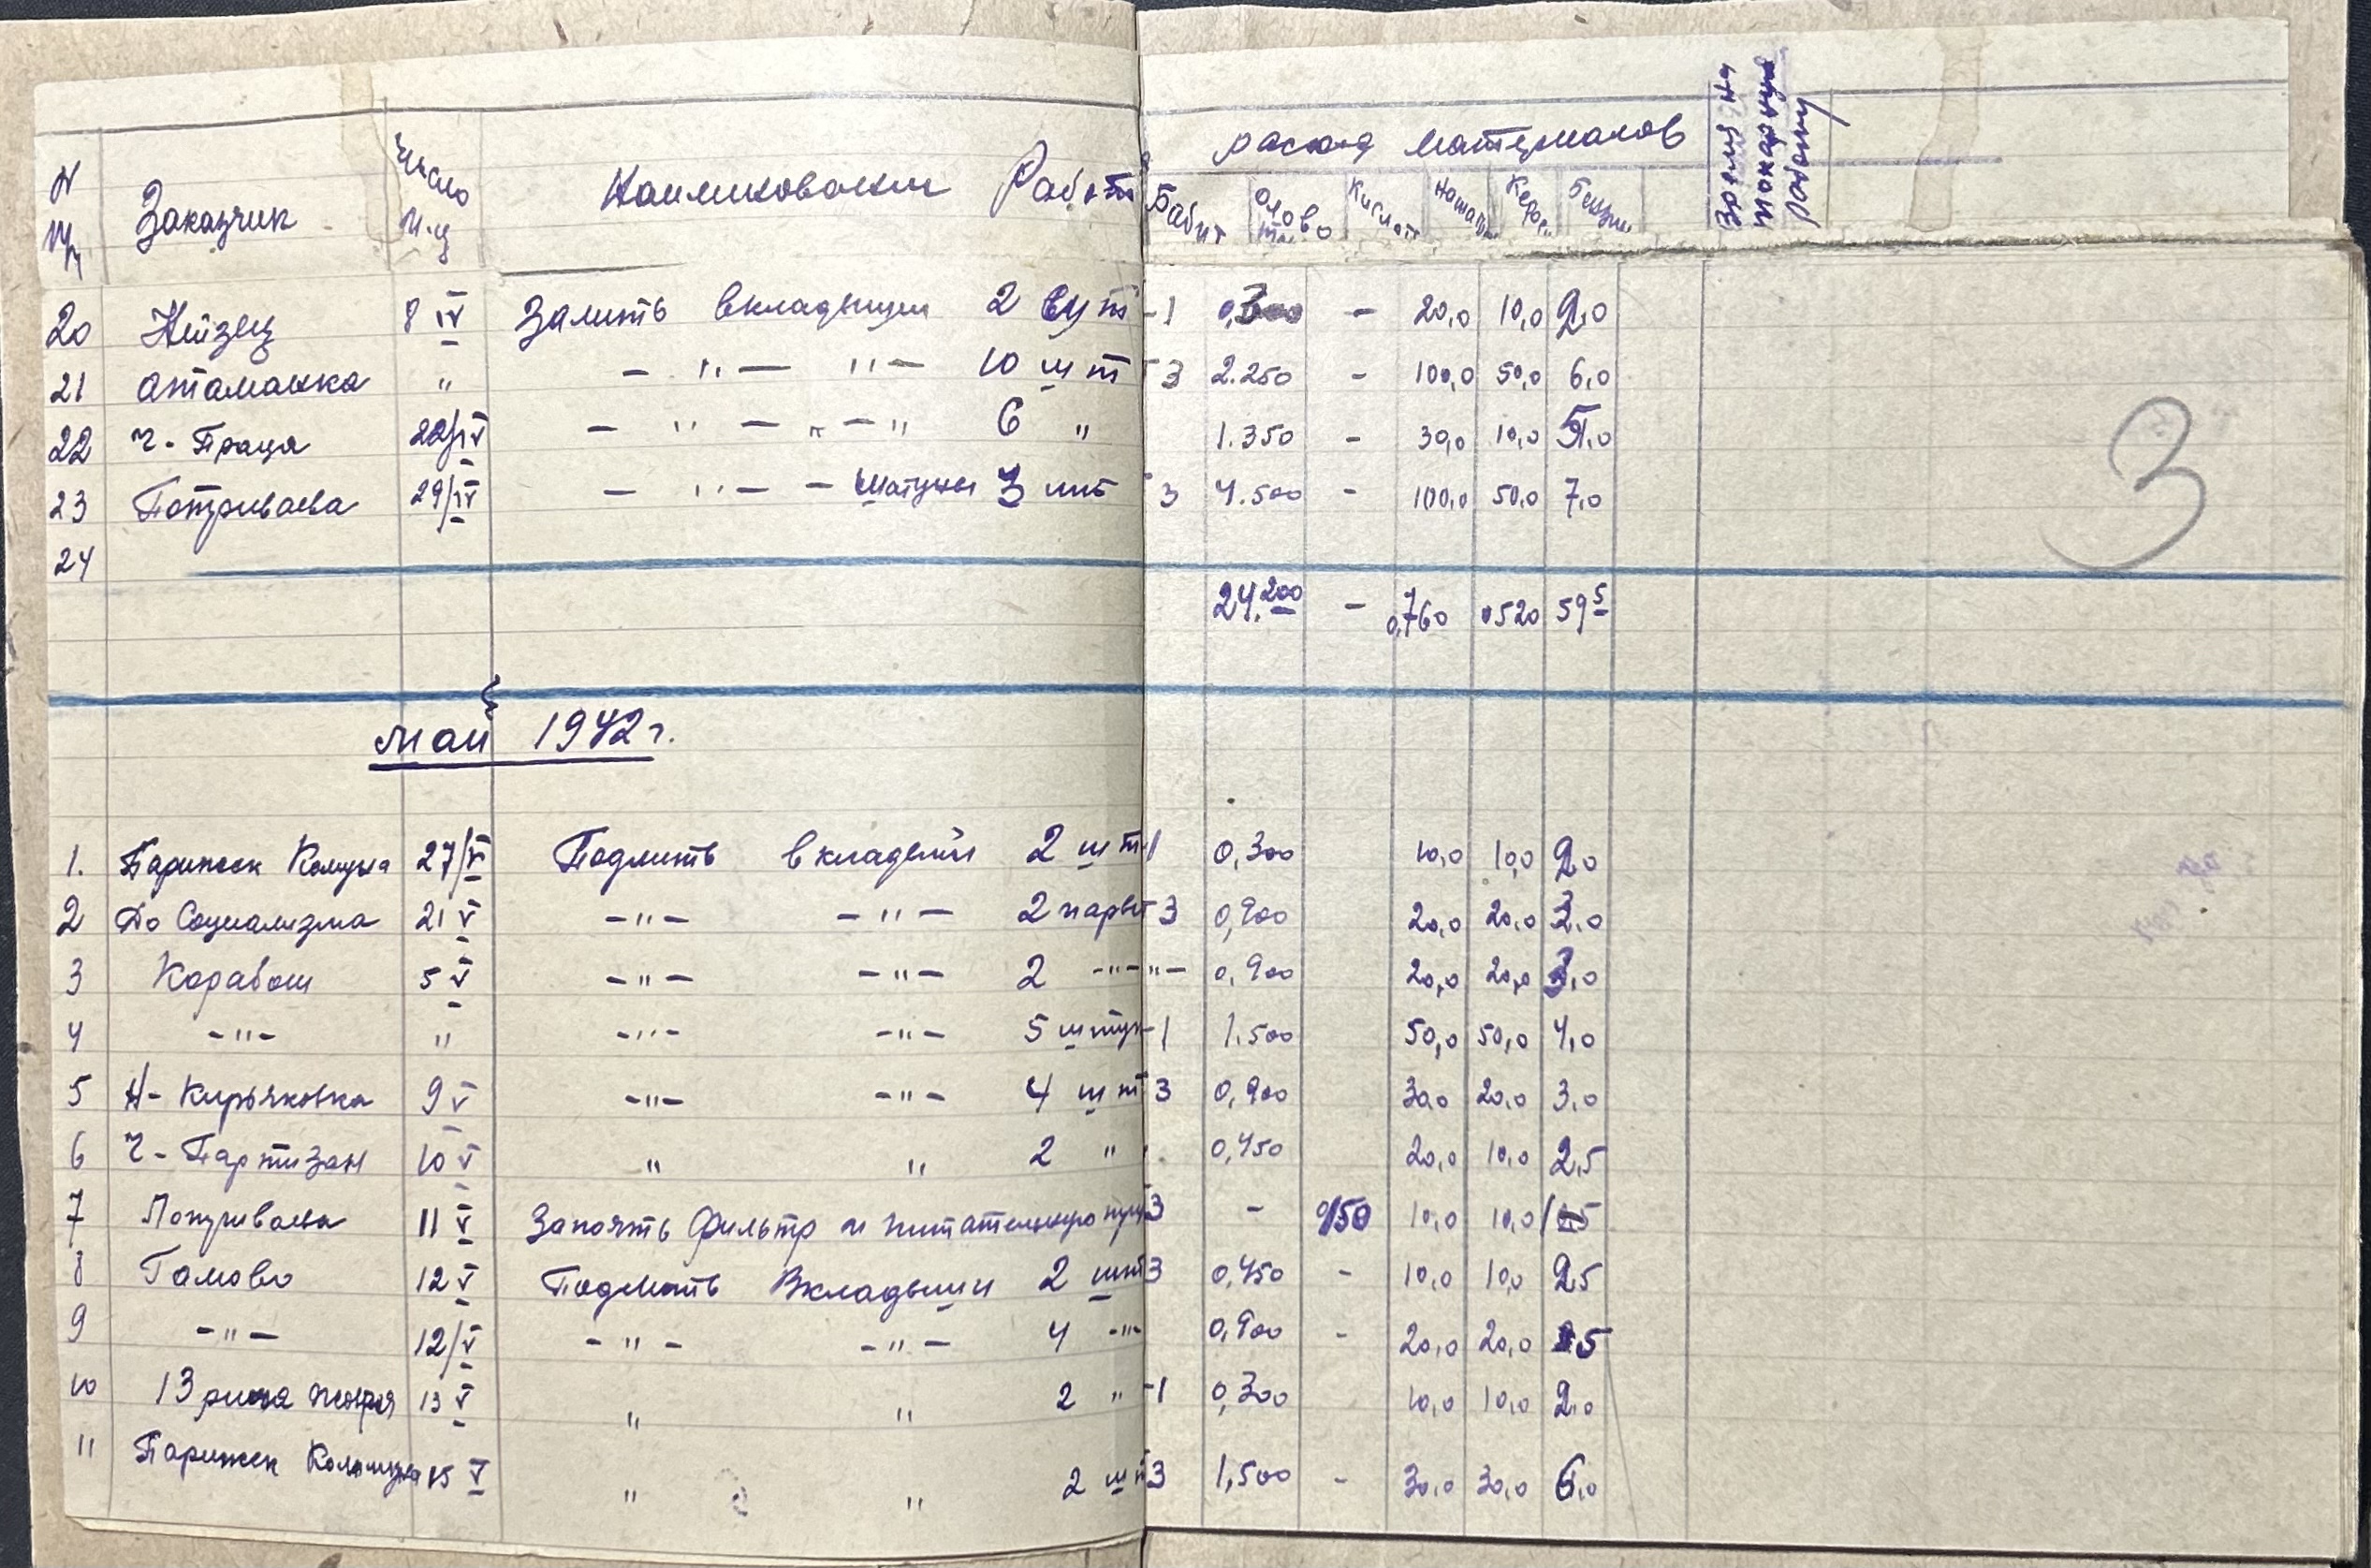 N Заказчик Число М-ц Наименование Работы расход материалов Время на токарную работу
п/п Бабит Олово Кислот Нашат Керос. Бензин
20 8 IV Залить вкладыши 2 шт -1 20,0 10,0 2,0
21 Атаманка " - " - " - 10 шт 3 2.250 - 100,0 50,0 6,0
22 Ч-Праця 22/IV - " - " - " 6 " 1.350 - 30,0 10,0 5,0
23 Потриваева 29/IV - " - - шатуны 3 шт 3 4.500 - 100,0 50,0 7,0
24
24.200 - 0,760 0520 59 5
Май 1942 г.
1. Парижск Комуна 27/V Подлить вкладыши 2 шт 1 0,300 10,0 10,0 2,0
2 До Социализма 21 V - " - - " - 2 пары 3 0,900 20,0 20,0 3,0
3 Карабаш 5 V - " - - " - 2 - " - " - 0,900 20,0 20,0 3,0
4 - " - " - " - - " - 5 штук -1 1.500 50,0 50,0 4,0
5 Н-Кирьяковка 9 V - " - - " - 4 шт 3 0,900 30,0 20,0 3,0
6 Ч-Партизан 10 V " " 2 " 0,450 20,0 10,0 2,5
7 Потриваева 11 V Запоять фильтр и питательную 3 - 0/50 10,0 10,0
8 Гамово 12 V Подлить Вкладыши 2 шт 3 0,450 - 10,0 10,0 2,5
9 - " - 12/V - " - - " - 4 - " - 0,900 - 20,0 20,0
10 13 рична Жовтня 13 V " " 2 " -1 0,300 10,0 10,0 2,0
11 Парижск Коммуна 15 V " " 2 шт 3 1,500 - 30,0 30,0 6,0
3